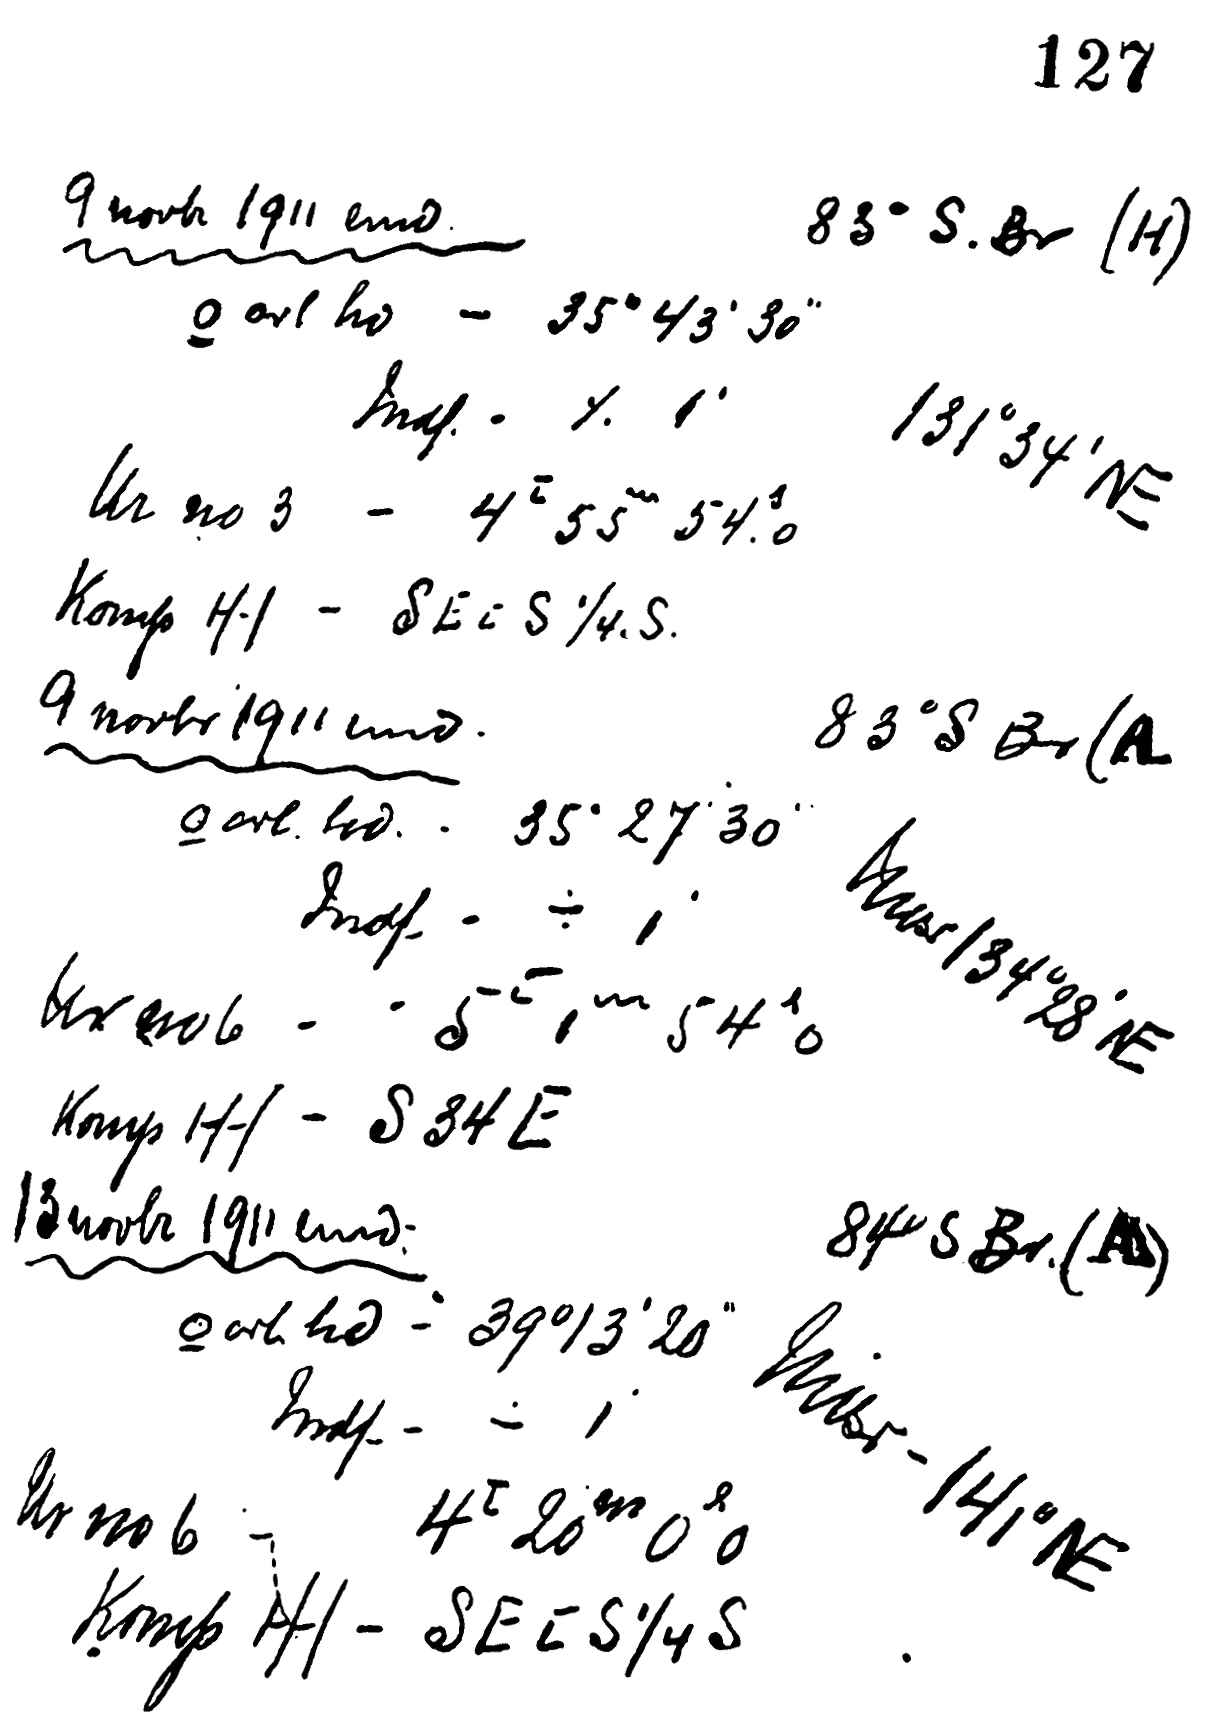 127
9 novbr 1911 emd. 83° S. Br (H)
o avl hd - 35° 43' 30"
Indf. - ÷ 1' 131° 34' NE
Ur no 3 - 4 t 55 m 54.s0
Komp H-I - SE t S 1/4. S.
9 novbr 1911 emd. 83° S Br (A
o avl. hd. - 35° 27' 30"
Indf. - ÷ 1'
134° 28' NE
Ur no 6 - 5 t 1 m 54 s 0
Komp H-I - S 34 E
13 novbr 1911 emd. 84° S Br. (A)
o avl. hd - 39° 13' 20"
Indf. - ÷ 1'
Misv - 141° NE
Ur no 6 - 4 t 20 m 0 s 0
Komp H-I - SE t S 1/4 S